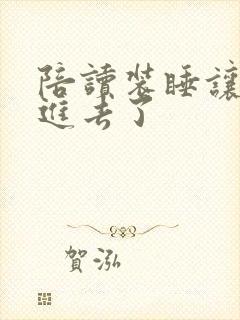 陪讀裝睡讓
進去了
賀泓